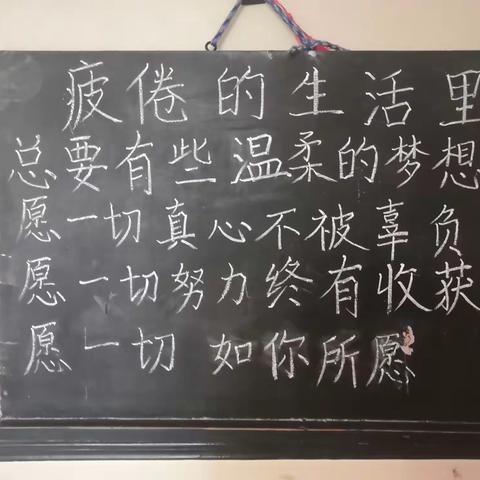 疲倦的生活里
总要有些温柔的梦想
愿一切真心不被辜负
愿一切努力终有收获
愿一切 如你所愿